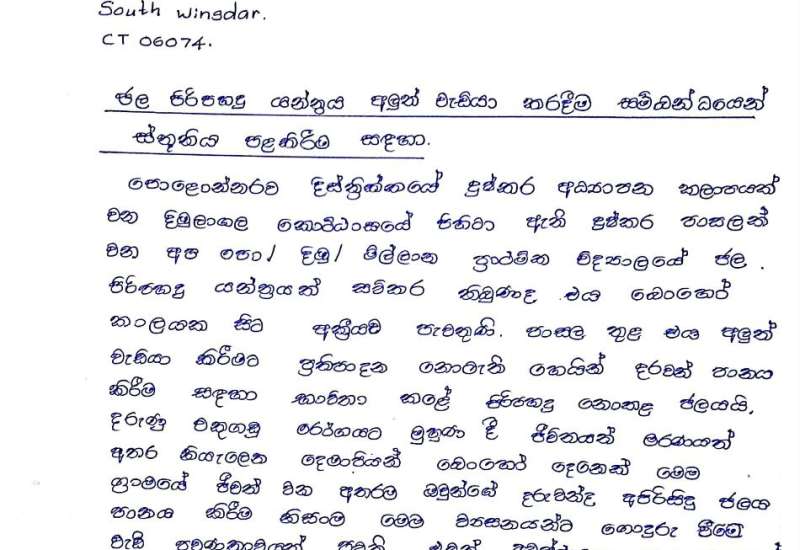 South Winsdar.
CT 06074.
ජල පිරිපහදු යන්ත්‍රය අලුත් වැඩියා කරදීම සම්බන්ධයෙන්
ස්තූතිය පළකිරීම සඳහා.
පොළොන්නරුව දිස්ත්‍රික්කයේ දුෂ්කර අධ්‍යාපන කලාපයක්
වන දිඹුලාගල කොට්ඨාංසයේ පිහිටා ඇති දුෂ්කර පාසලක්
වන අප පො/ දිඹු/ මිල්ලාන ප්‍රාථමික විද්‍යාලයේ ජල
පිරිපහදු යන්ත්‍රයක් සවිකර තිබුණද එය බොහෝ
කාලයක සිට අක්‍රීයව පැවතුණි. පාසල තුළ එය අලුත්
වැඩියා කිරීමට ප්‍රතිපාදන නොමැති හෙයින් දරුවන් පානය
කිරීම සඳහා භාවිතා කළේ පිරිපහදු නොකළ ජලයයි.
දරුණු වකුගඩු රෝගයට මුහුණ දී ජීවිතයත් මරණයත්
අතර කියැලෙන දෙමාපියන් බොහෝ දෙනෙක් මෙම
ග්‍රාමයේ ජීවත් වන අතරම ඔවුන්ගේ දරුවන්ද අපිරිසිදු ජලය
පානය කිරීම නිසාම මෙම ව්‍යසනයන්ට ගොදුරු වීමේ
වැඩි ප්‍රවණතාවයක්